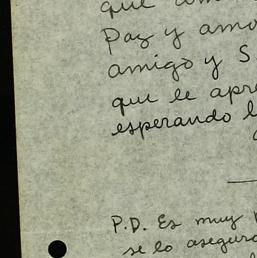 que
Paz y amo
amigo y S
que le apre
esperando l
P.D. Es muy
se lo asegura